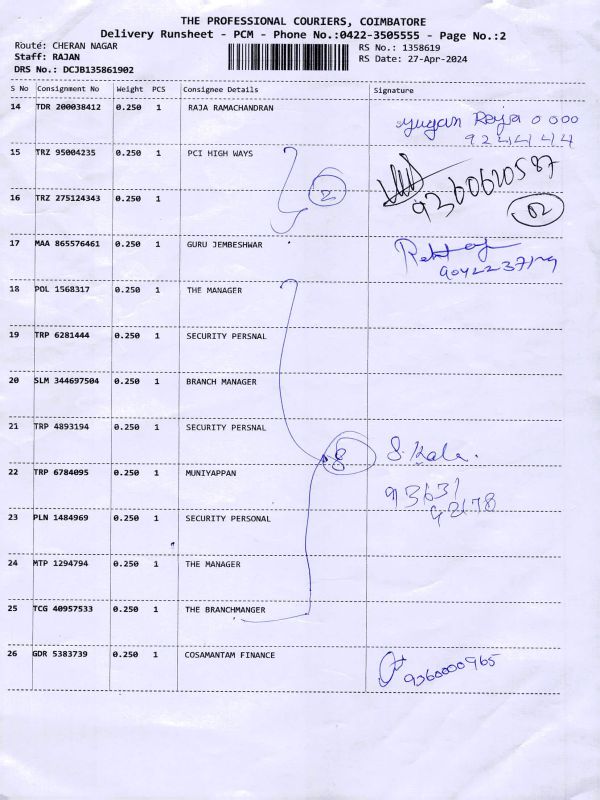 THE PROFESSIONAL COURIERS, COIMBATORE
Delivery Runsheet - PCM - Phone No.:0422-3505555 - Page No.:2
Route: CHERAN NAGAR RS No.: 1358619
Staff: RAJAN RS Date: 27-Apr-2024
DRS No.: DCJB135861902
S No Consignment No Weight PCS Consignee Details Signature
14 TDR 200038412 0.250 1 RAJA RAMACHANDRAN
15 TRZ 95004235 0.250 1 PCI HIGH WAYS
9360620587
16 TRZ 275124343 0.250 1 2 02
17 MAA 865576461 0.250 1 GURU JEMBESHWAR
18 POL 1568317 0.250 1 THE MANAGER
19 TRP 6281444 0.250 1 SECURITY PERSNAL
20 SLM 344697504 0.250 1 BRANCH MANAGER
21 TRP 4893194 0.250 1 SECURITY PERSNAL
8 S. Kala.
22 TRP 6784095 0.250 1 MUNIYAPPAN
93631
42178
23 PLN 1484969 0.250 1 SECURITY PERSONAL
24 MTP 1294794 0.250 1 THE MANAGER
25 TCG 40957533 0.250 1 THE BRANCHMANGER
26 GDR 5383739 0.250 1 COSAMANTAM FINANCE
9360000965